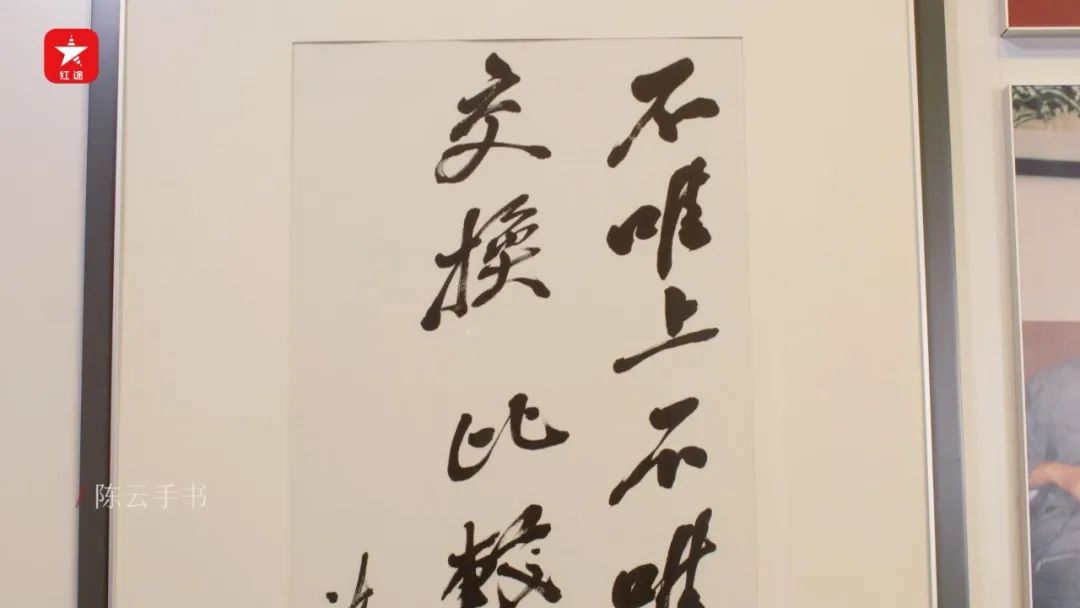 红途
不唯上不唯
交换比较
陈云手书